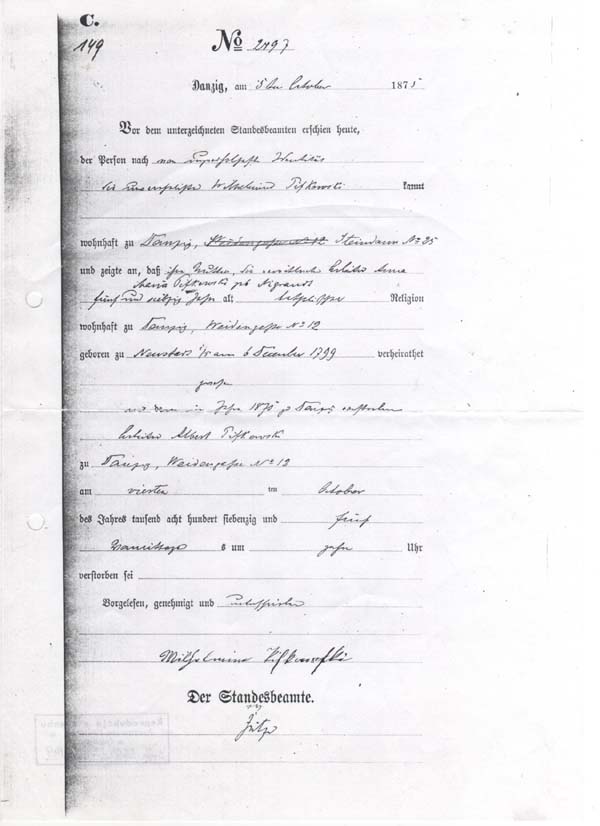 C.
149
No 2497
Danzig, am 5ten October 1875
Vor dem unterzeichneten Standesbeamten erschien heute,
der Person nach
die unverehelichte Wilhelmine Pifkowski kannt
wohnhaft zu Danzig, Weidengasse No 12 Steindamm No 25
und zeigte an, daß ihre Mutter, die verwittwete Arbeiter Anna
Maria Pifkowski geb
fünf und siebzig Jahr alt, katholischer Religion
wohnhaft zu Danzig, Weidengasse No 12
geboren zu Neustadt am 6 December 1799 verheirathet
gewesen
mit dem im Jahre 1870 zu Danzig verstorbenen
Arbeiter Albert Pifkowski
zu Danzig, Weidengasse No 12
am vierten ten October
des Jahres tausend acht hundert siebenzig und fünf
Vormittags s um zehn Uhr
verstorben sei
Vorgelesen, genehmigt und unterschrieben
Wilhelmine Pifkowski
Der Standesbeamte.